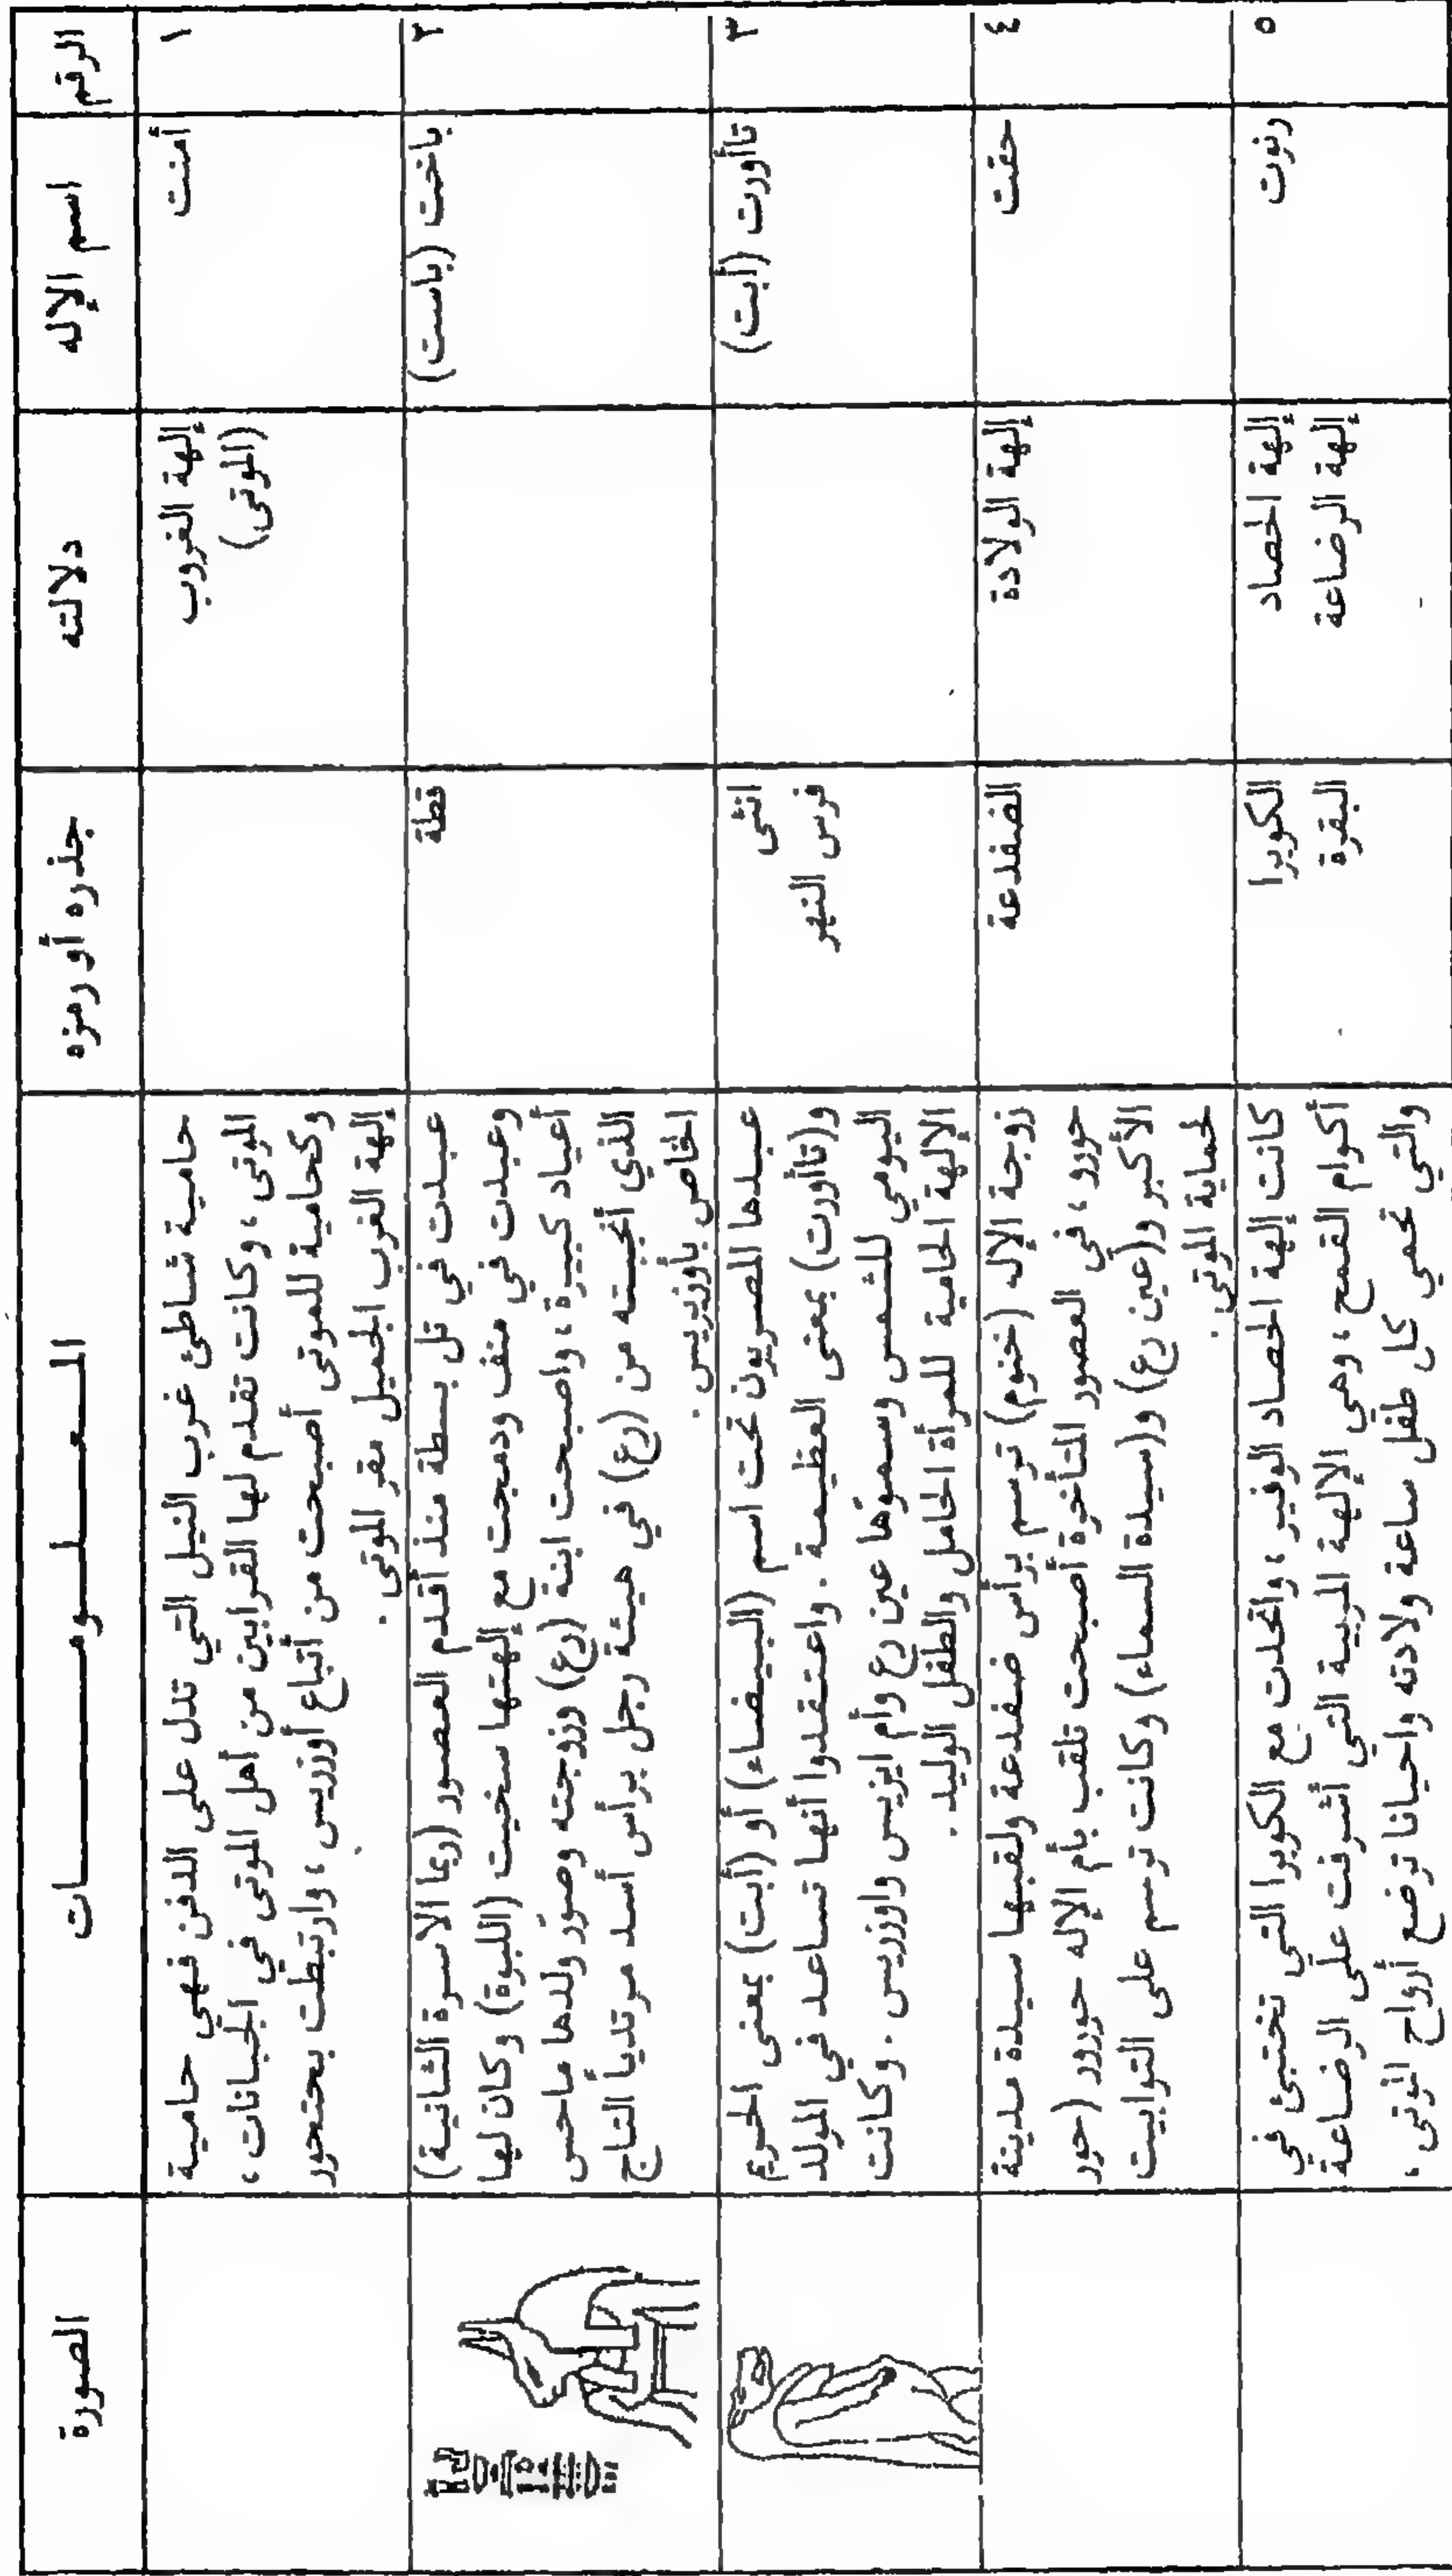 الرقم
اسم الإله
دلالته
جذره أو رمزه
المعلومات
الصورة
١
أمنت
إلهة الغروب
(الموتى)
حامية شاطئ غرب النيل التي تدل على الدفن فهي حامية
الموتى ، وكانت تقدم لها القرابين من أهل الموتى في الجبانات ،
وكحامية للموتى أصبحت من أتباع أوزريس ، وارتبطت بحتحور
إلهة الغرب الجميل مقر الموتى .
٢
باخت (باست)
قطة
عبدت في تل بسطة منذ أقدم العصور (ربما الاسرة الثانية)
وعبدت في منف ودمجت مع إلهتها سخيت (اللبوة) وكان لها
أعياد كبيرة ، واصبحت ابنة (رع) وزوجته وصوّر ولدها ماحس
الذي أنجبته من (رع) في هيئة رجل برأس أسد مرتدياً التاج
الخاص بأوزيريس .
٣
تاأورت (أبت)
انثى
فرس النهر
عبدها المصريون تحت اسم (البيضاء) أو (أبت) بمعنى الحريم
و(تاأورت) بمعنى العظيمة . واعتقدوا أنها تساعد في المولد
اليومي للشمس وسموّها عين رع وأم ايزيس واوزريس . وكانت
الإلهة الحامية للمرأة الحامل والطفل الوليد .
٤
حقت
إلهة الولادة
الضفدعة
زوجة الإله (خنوم) ترسم برأس ضفدعة ولقبها سيدة مدينة
حورو ، في العصور المتأخرة أصبحت تلقب بأم الإله حورور (حور
الأكبر و(عين رع) و(سيدة السماء) وكانت ترسم على التوابيت
لحماية الموتى .
٥
رنوت
إلهة الحصاد
إلهة الرضاعة
الكوبرا
البقرة
كانت إلهة الحصاد الوفير ، واتحدت مع الكوبرا التي تختبئ في
أكوام القمح ، وهي الإلهة المربية التي أشرفت على الرضاعة
والتي تحمي كل طفل ساعة ولادته واحيانا ترضع أرواح الموتى ،